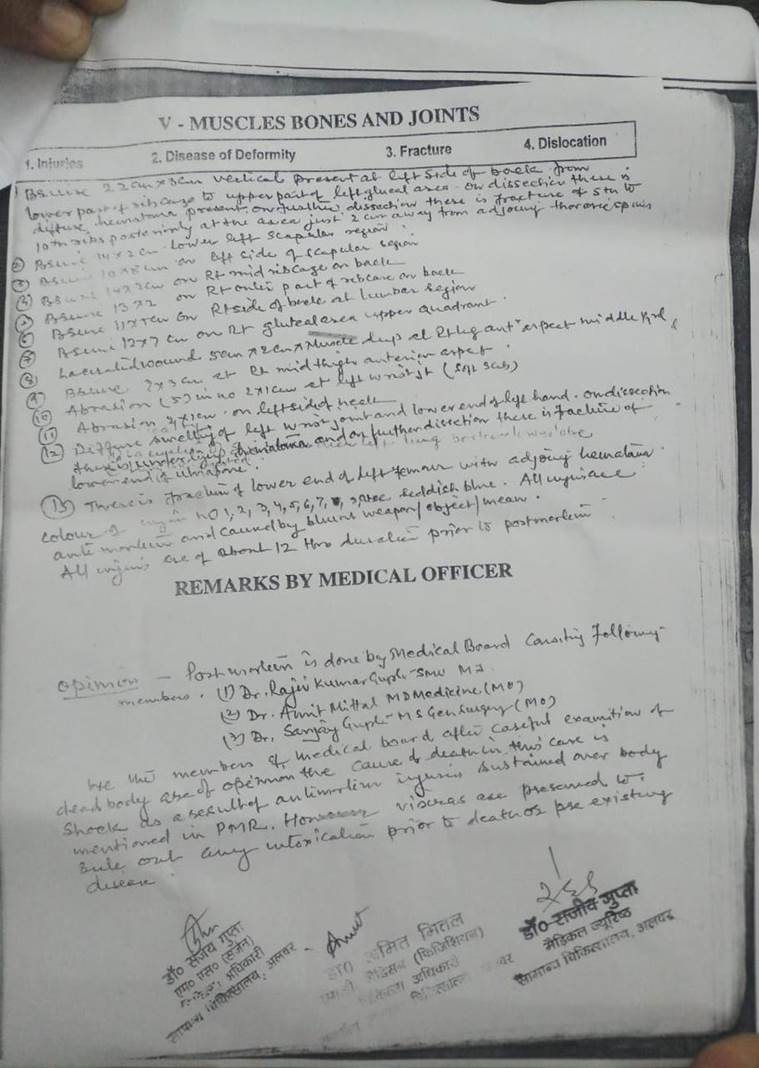 V - MUSCLES BONES AND JOINTS
1. Injuries 2. Disease of Deformity 3. Fracture 4. Dislocation
1 Bruise 22cm x 3cm vertical present at left side of back from
lower part of ribcage to upper part of left gluteal area. On dissection there is
diffuse hematoma present, on further dissection there is fracture of 5th to
10th ribs posteriorly at the area just 2 cm away from adjoing thoracic spines
② Bruise 14 x 2cm lower left scapular region.
③ Bruise 10 x 8cm on left side of scapular region
④ Bruise 14 x 2cm on Rt mid ribcage on back
⑤ Bruise 13 x 2 on Rt outer part of ribcage on back
⑥ Bruise 11 x 5cm on Rt side of back at lumbar region
⑦ Bruise 12 x 7 cm on Rt gluteal area upper quadrant.
⑧ Lacerated wound 5cm x 2cm x Muscle deep at Rt leg ant aspect middle
⑨ Bruise 7 x 3cm at Rt mid thigh anterior aspect.
⑩ Abrasion (5) in no 2 x 1cm at left wrist jt (soft scab)
⑪ Abrasion x 1cm on left side of neck
⑫ Diffuse swelling of left wrist joint and lower end of left hand. On dissection
there is underlying hematoma and on further dissection there is fracture of
lower end of ulna bone.
⑬ There is fracture of lower end of left femur with adjoing hematoma.
colour of injuri no 1, 2, 3, 4, 5, 6, 7, 9, are reddish blue. All injuries are
anti mortem and caused by blunt weapon/object/mean.
All injuris are of about 12 hrs duration prior to postmortem
REMARKS BY MEDICAL OFFICER
Opinion - Post mortem is done by Medical Board Consiting following
members. (1) Dr. Rajiv Kumar Gupta - SMO MJ
(2) Dr. Amit Mittal MD Medicine (MO)
(3) Dr. Sanjay Gupta - MS Gen Surgery (MO)
We the members of medical board after careful examition of
dead body are of openion the cause of death in this case is
Shock as a result of antimortem injuris sustained over body
mentioned in PMR. However visceras are preserved to
rule out any intoxication prior to death or pre existing
disease.
डॉ० संजय गुप्ता
एम० एस० (सर्जन)
अधिकारी
सामान्य चिकित्सालय, अलवर
Amit
डा० अमित मित्तल
(फिजिशियन)
चिकित्सा अधिकारी
डॉ० राजीव गुप्ता
मेडिकल ज्यूरिष्ठ
सामान्य चिकित्सालय, अलवर